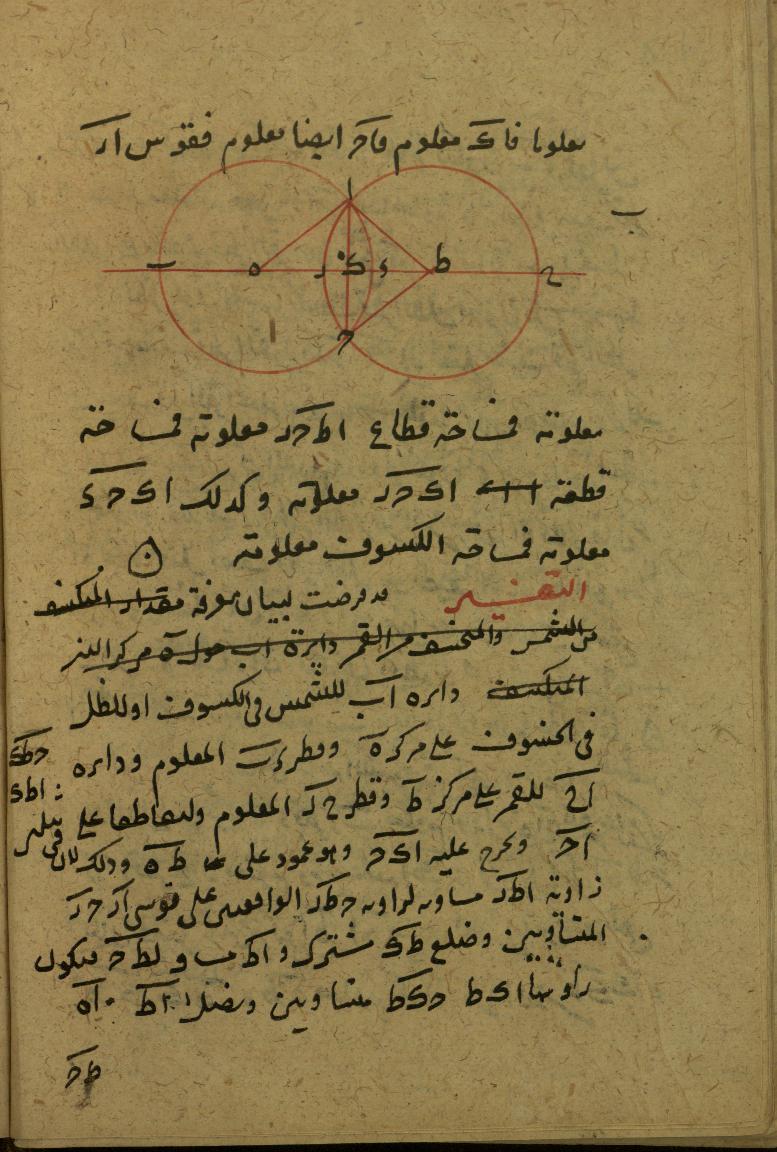 معلوما فاك معلوم فاحر ايضا معلوم فقوس ار
ا
ب
ب ه ر ك ء ط ح
ح
معلومة فمساحة قطاع اطحر معلومة فمساحة
قطعة اكحر معلومة وكذلك اكحء
معلومة فمساحة الكسوف معلومة
التفسير قد فرضت لبيان معرفة مقدار المنكسف
من الشمس والمنخسف من القمر دايرة اب حول ه مركز النير
المنكسف دايرة اب للشمس في الكسوف او للظل
في الخسوف على مركز ه وقطر المعلوم ودايرة
اح للقمر على مركز ط وقطر ح ر المعلوم وليتقاطعا على
اح ويخرج عليه اكح وهو عمود على ط ه وذلك لان
زاوية اطر مساوية لزاوية حطر الواقعتين على قوسي ار حر
المتساويين وضلع طك مشترك و اط مساو لطح فيكون
زاويتا اكط حكط متساويين ونصل اط اه
حطك
اطك
طح